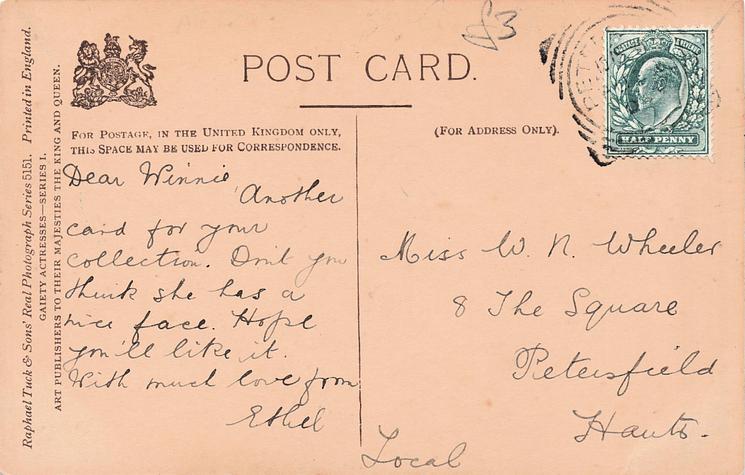 Raphael Tuck & Sons' Real Photograph Series 5151. Printed in England.
GAIETY ACTRESSES—SERIES I.
ART PUBLISHERS TO THEIR MAJESTIES THE KING AND QUEEN.
83
POST CARD.
FOR POSTAGE, IN THE UNITED KINGDOM ONLY,
THIS SPACE MAY BE USED FOR CORRESPONDENCE.
Dear Winnie
Another
card for your
collection. Don't you
think she has a
nice face. Hope
you'll like it.
With much love from
Ethel
(FOR ADDRESS ONLY).
POSTAGE
HALF PENNY
Miss W. N. Wheeler
8 The Square
Petersfield
Hants.
Local